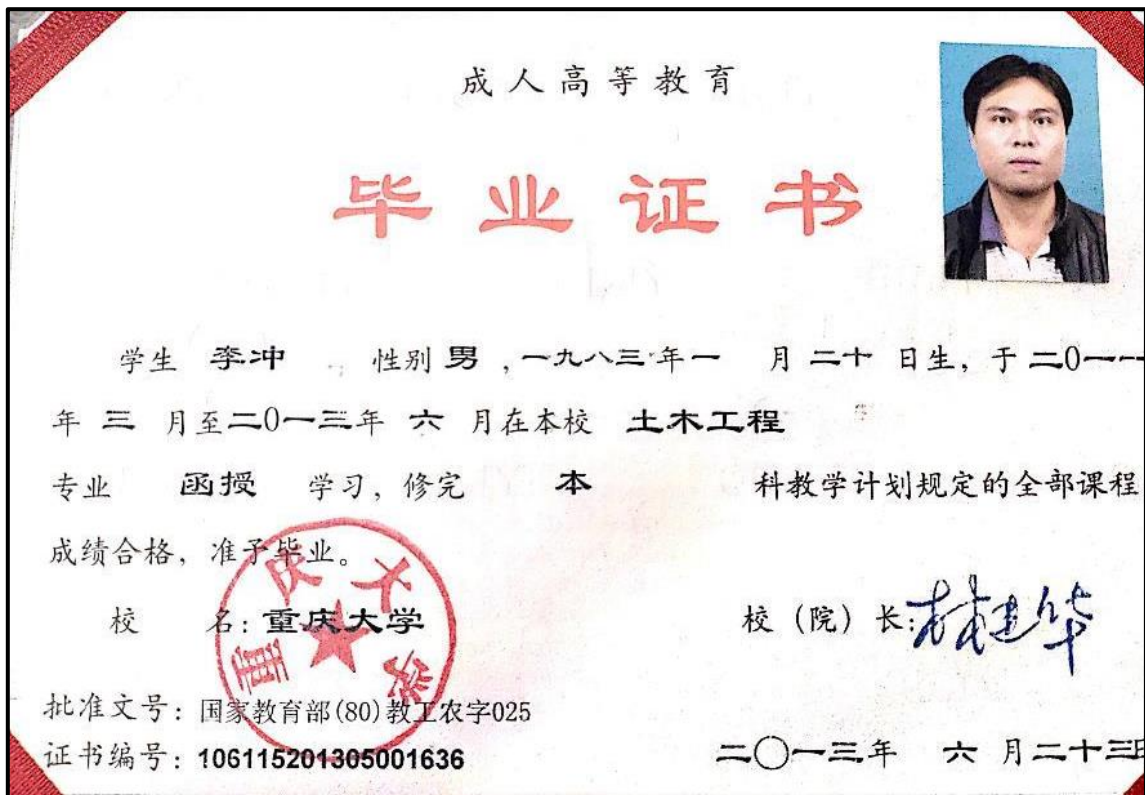 成人高等教育
毕业证书
学生 李冲 性别 男 ,一九八三年一 月 二十 日生, 于 二0一一
年 三 月至二0一三年 六 月在本校 土木工程
专业 函授 学习, 修完 本 科教学计划规定的全部课程
成绩合格, 准予毕业。
校 名: 重庆大学 校 (院) 长: 林建华
重庆大学
批准文号: 国家教育部(80)教工农字025
证书编号: 106115201305001636 二〇一三年 六 月二十三日